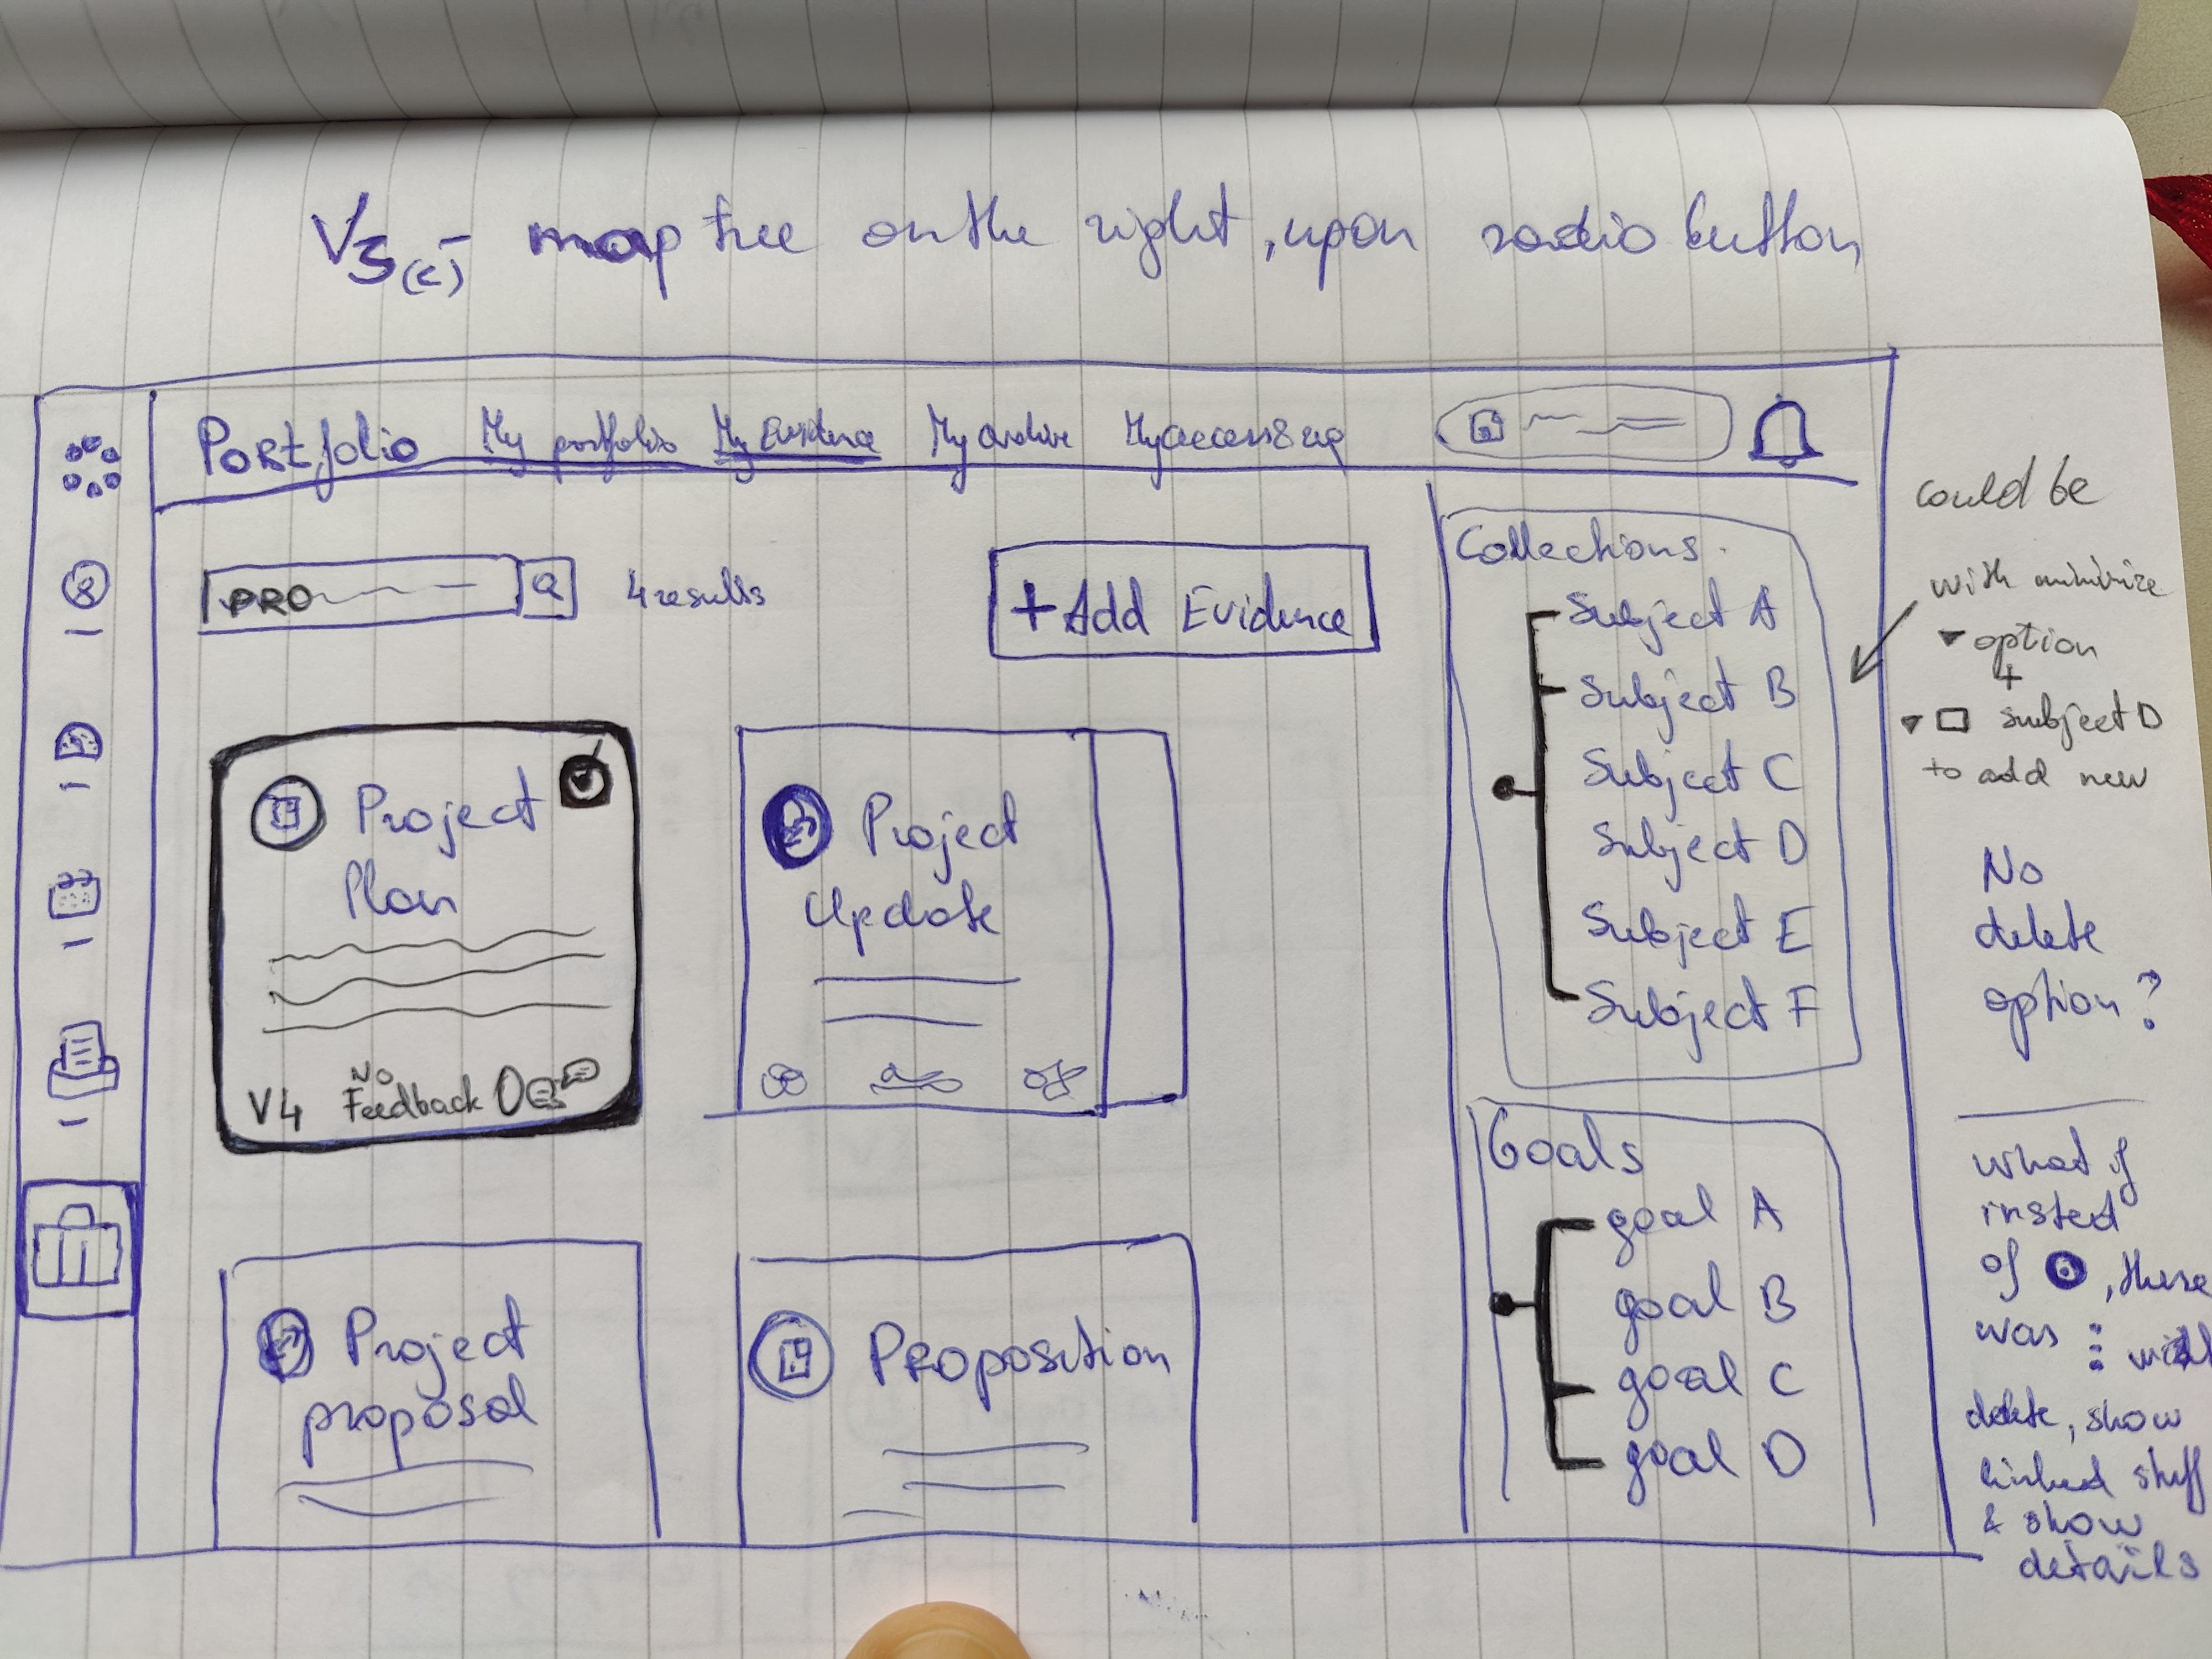 V3(c) - map tree on the right, upon radio button
Portfolio My portfolio My Evidence My archive My access req
PRO 4 results + Add Evidence
Project
Plan
V4 No Feedback 0
Project
Update
Project
proposal
Proposition
Collections.
Subject A
Subject B
Subject C
Subject D
Subject E
Subject F
Goals
goal A
goal B
goal C
goal D
could be
with minimize
▾ option
+
▾ □ subject D
to add new
No
delete
option?
what if
insted
of ⊙, there
was ⋮ with
delete, show
linked stuff
& show
details